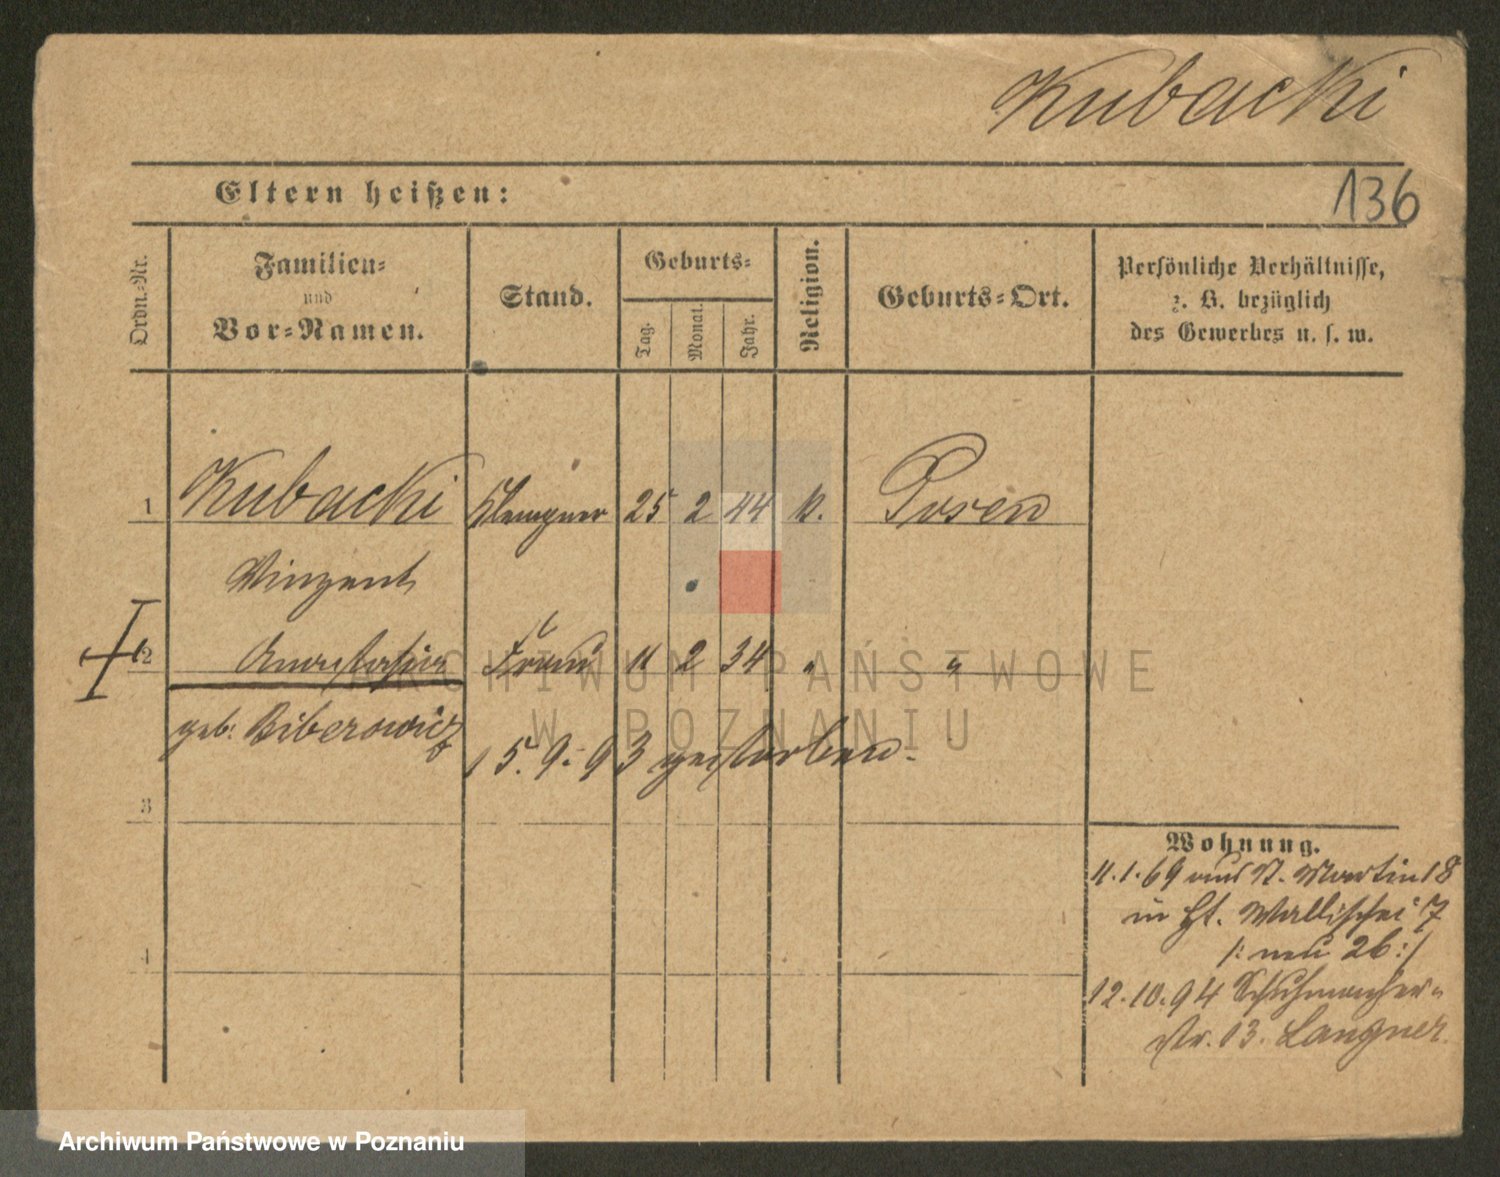 Kubacki
Eltern heißen:
136
Ordn.-Nr.
Familien-
und
Vor-Namen.
Stand.
Geburts-
Tag.
Monat.
Jahr.
Religion.
Geburts-Ort.
Persönliche Verhältnisse,
z. B. bezüglich
des Gewerbes u. s. w.
1 Kubacki Klempner 25 2 44 k. Posen
Vinzent
2 Anastasia Frau 11 2 34 " "
geb: Biberowicz
15.9.93 gestorben.
3
4
Wohnung.
11.1.69 aus St. Martin 18
in Wallischei 7
/: neu 26:/
12.10.94 Schuhmacher-
str. 13. Langner.
ARCHIWUM PAŃSTWOWE
W POZNANIU
Archiwum Państwowe w Poznaniu